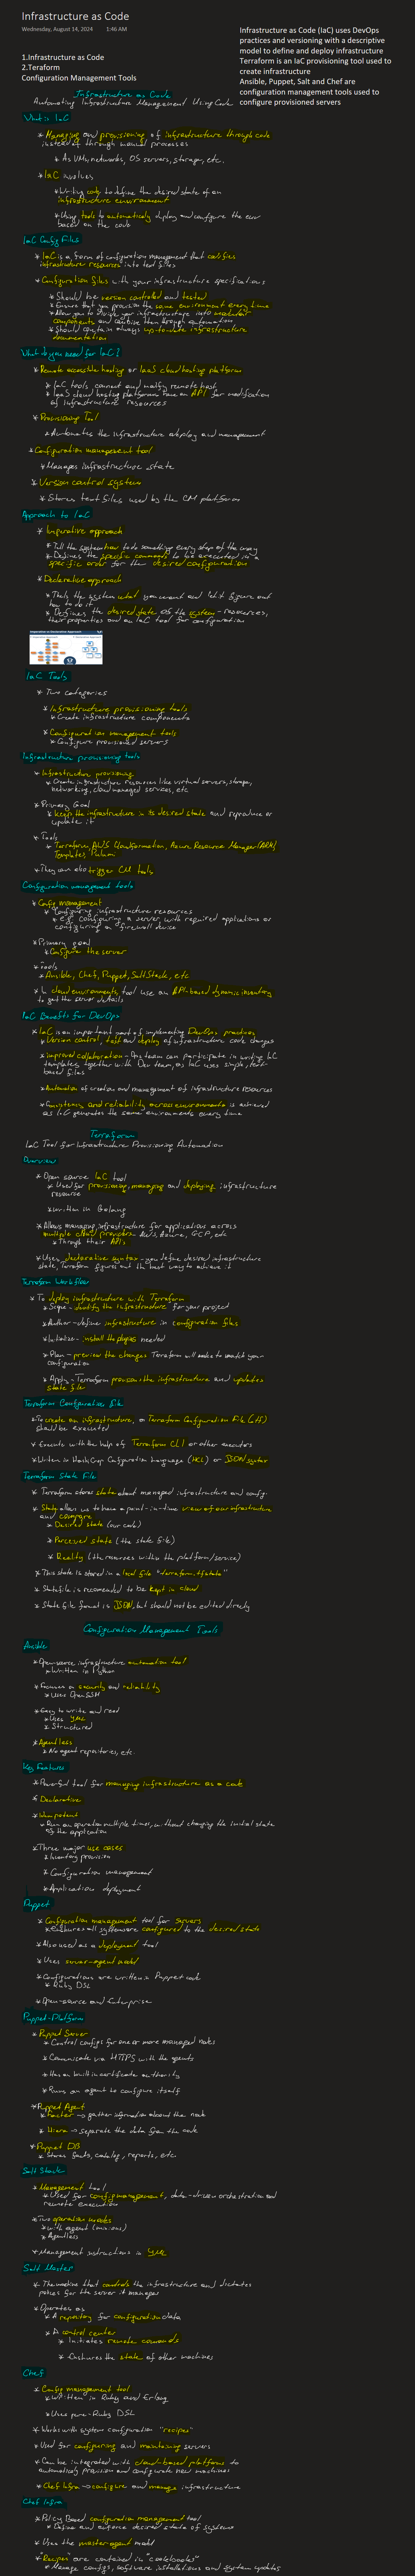 Infrastructure as Code
Wednesday, August 14, 2024 1:46 AM
Infrastructure as Code (IaC) uses DevOps
practices and versioning with a descriptive
model to define and deploy infrastructure
Terraform is an IaC provisioning tool used to
create infrastructure
Ansible, Puppet, Salt and Chef are
configuration management tools used to
configure provisioned servers
1.Infrastructure as Code
2.Teraform
Configuration Management Tools
Infrastructure as Code
Automating Infrastructure Management Using Code
What is IaC
* Managing and provisioning of infrastructure through code
instead of through manual processes
* As VMs, networks, OS servers, storage, etc.
* IaC involves,
* Writing code to define the desired state of an
infrastructure environment
* Using tools to automatically deploy and configure the env
based on the code
IaC Config Files
* IaC is a form of configuration management that codifies
infrastructure resources into text files
* Configuration files with your infrastructure specifications
* Should be version controlled and tested
* Ensures that you provision the same environment every time
* Allow you to divide your infrastructure into modular
components and combine them through automation
* Should contain always up-to-date infrastructure
documentation
What do you need for IaC?
* Remote accessible hosting or IaaS cloud hosting platform
* IaC tools connect and modify remote host
* IaaS cloud hosting platforms have an API for modification
of infrastructure resources
* Provisioning Tool
* Automates the infrastructure deploy and management
* Configuration management tool
* Manages infrastructure state
* Version control system
* Stores text files used by the CM platform
Approach to IaC
* Imperative approach
* Tell the system how to do something every step of the way
* Defines the specific commands to be executed in a
specific order for the desired configuration
* Declarative approach
* Tells the system what you want and let it figure out
how to do it
* Defines the desired state of the system - resources,
their properties and an IaC tool for configuration
Imperative vs Declarative Approach
IaC Tools
* Two categories
* Infrastructure provisioning tools
* Create infrastructure components
* Configuration management tools
* Configure provisioned servers
Infrastructure provisioning tools
* Infrastructure provisioning
* Create infrastructure resources like virtual servers, storage,
networking, cloud managed services, etc
* Primary Goal
* Keep the infrastructure in its desired state and reproduce or
update it
* Tools
* Terraform, AWS Cloudformation, Azure Resource Manager (ARM)
Templates, Pulumi
* They can also trigger CM tools
Configuration management tools
* Config management
* Configuring infrastructure resources
* e.g. Configuring a server with required applications or
configuring a firewall device
* Primary goal
* Configure the server
* Tools
* Ansible, Chef, Puppet, SaltStack, etc
* In cloud environments, tool use an API-based dynamic inventory
to get the server details
IaC Benefits for DevOps
* IaC is an important part of implementing DevOps practices
* Version control, test and deploy of infrastructure code changes
* improved collaboration - Ops team can participate in writing IaC
templates together with Dev team, as IaC uses simple, text-
based files
* Automation of creation and management of infrastructure resources
* Consistency and reliability across environments is achieved
as IaC generates the same environments every time
Terraform
IaC Tool for Infrastructure Provisioning Automation
Overview
* Open source IaC tool
* Used for provisioning, managing and deploying infrastructure
resource
* Written in Golang
* Allows managing infrastructure for applications across
multiple cloud providers AWS, Azure, GCP, etc
* Through their APIs
* Uses declarative syntax - you define desired infrastructure
state, Terraform figures out the best way to achieve it
Terraform Workflow
* To deploy infrastructure with Terraform
* Scope - identify the infrastructure for your project
* Author - define infrastructure in configuration files
* Initialize - install the plugins needed
* Plan - preview the changes Terraform will make to match your
configuration
* Apply - Terraform provisions the infrastructure and updates
state file
Terraform Configuration File
* To create an infrastructure, a Terraform Configuration File (.tf)
should be executed
* Execute with the help of Terraform CLI or other executors
* Written in HashiCorp Configuration Language (HCL) or JSON syntax
Terraform State File
* Terraform stores state about managed infrastructure and config.
* State allows us to have a point-in-time view of our infrastructure
and compare
* Desired state (our code)
* Perceived state (the state file)
* Reality (the resources within the platform/service)
* This state is stored in a local file "terraform.tfstate"
* Statefile is recomended to be kept in cloud
* State file format is JSON, but should not be edited directly
Configuration Management Tools
Ansible
* Open-source infrastructure automation tool
* Written in Python
* Focuses on security and reliability
* Uses OpenSSH
* Easy to write and read
* Uses YML
* Structured
* Agentless
* No agent repositories, etc.
Key Features
* Powerful tool for managing infrastructure as a code
* Declarative
* Idempotent
* Run an operation multiple times, without changing the initial state
of the application
* Three major use cases
* Inventory provision
* Configuration management
* Application deployment
Puppet
* Configuration management tool for servers
* Ensures all systems are configured to the desired state
* Also used as a deployment tool
* Uses server-agent model
* Configurations are written in Puppet code
* Ruby DSL
* Open-source and Enterprise
Puppet-Platform
* Pupped Server
* Control configs for one or more managed nodes
* Comunicate via HTTPS with the agents
* Has a built in certificate authority
* Runs an agent to configure itself
* Pupped Agent
* Facter -> gather information about the node
* Hiera -> separate the data from the code
* Puppet DB
* Stores facts, catalog, reports, etc.
Salt Stack
* Management tool
* Used for config management, data-driven orchestration and
remote execution
* Two operation modes
* with agent (minions)
* Agentless
* Management instructions in YML
Salt Master
* The machine that controls the infrastructure and dictates
polices for the server it manages
* Operates as
* A repository for configuration data
* A control center
* Initiates remote comands
* Enshures the state of other machines
Chef
* Config management tool
* Written in Ruby and Erlang
* Uses pure-Ruby DSL
* Works with system configuration "recipes"
* Used for configuring and maintaining servers
* Can be integrated with cloud-based platforms to
automaticly provision and configurate new machines
* Chef Infra -> configure and manage infrastructure
Chef Infra
* Policy Based configuration management tool
* Define and enforce desired state of systems
* Uses the master-agent model
* "Recipes" are contained in "cookbooks"
* Manage configs, software installations and system updates